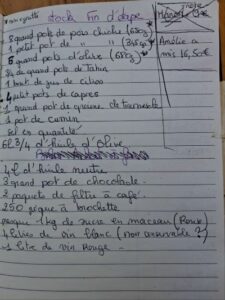 Stock Fin d'étape
8 grand pots de pois chiche (650g)
1 petit pot de " " (345g)
5 grand pots d'olive (650g)
3/4 de grand pots de tahin
1 bout de jus de citron
4 petit pots de capres
1 grand pot de graine de tournesols
1 pot de cumin
Sel en quantité
6L 3/4 d'huile d'olive
4L d'huile neutre
3 grand pot de chocolade
2 paquets de filtre à café
250 pique à brochette
presque 1 kg de sucre en morceau (Roux)
4 litres de vin blanc (non
1 litre de vin Rouge
Amélie a
mis 16,50€